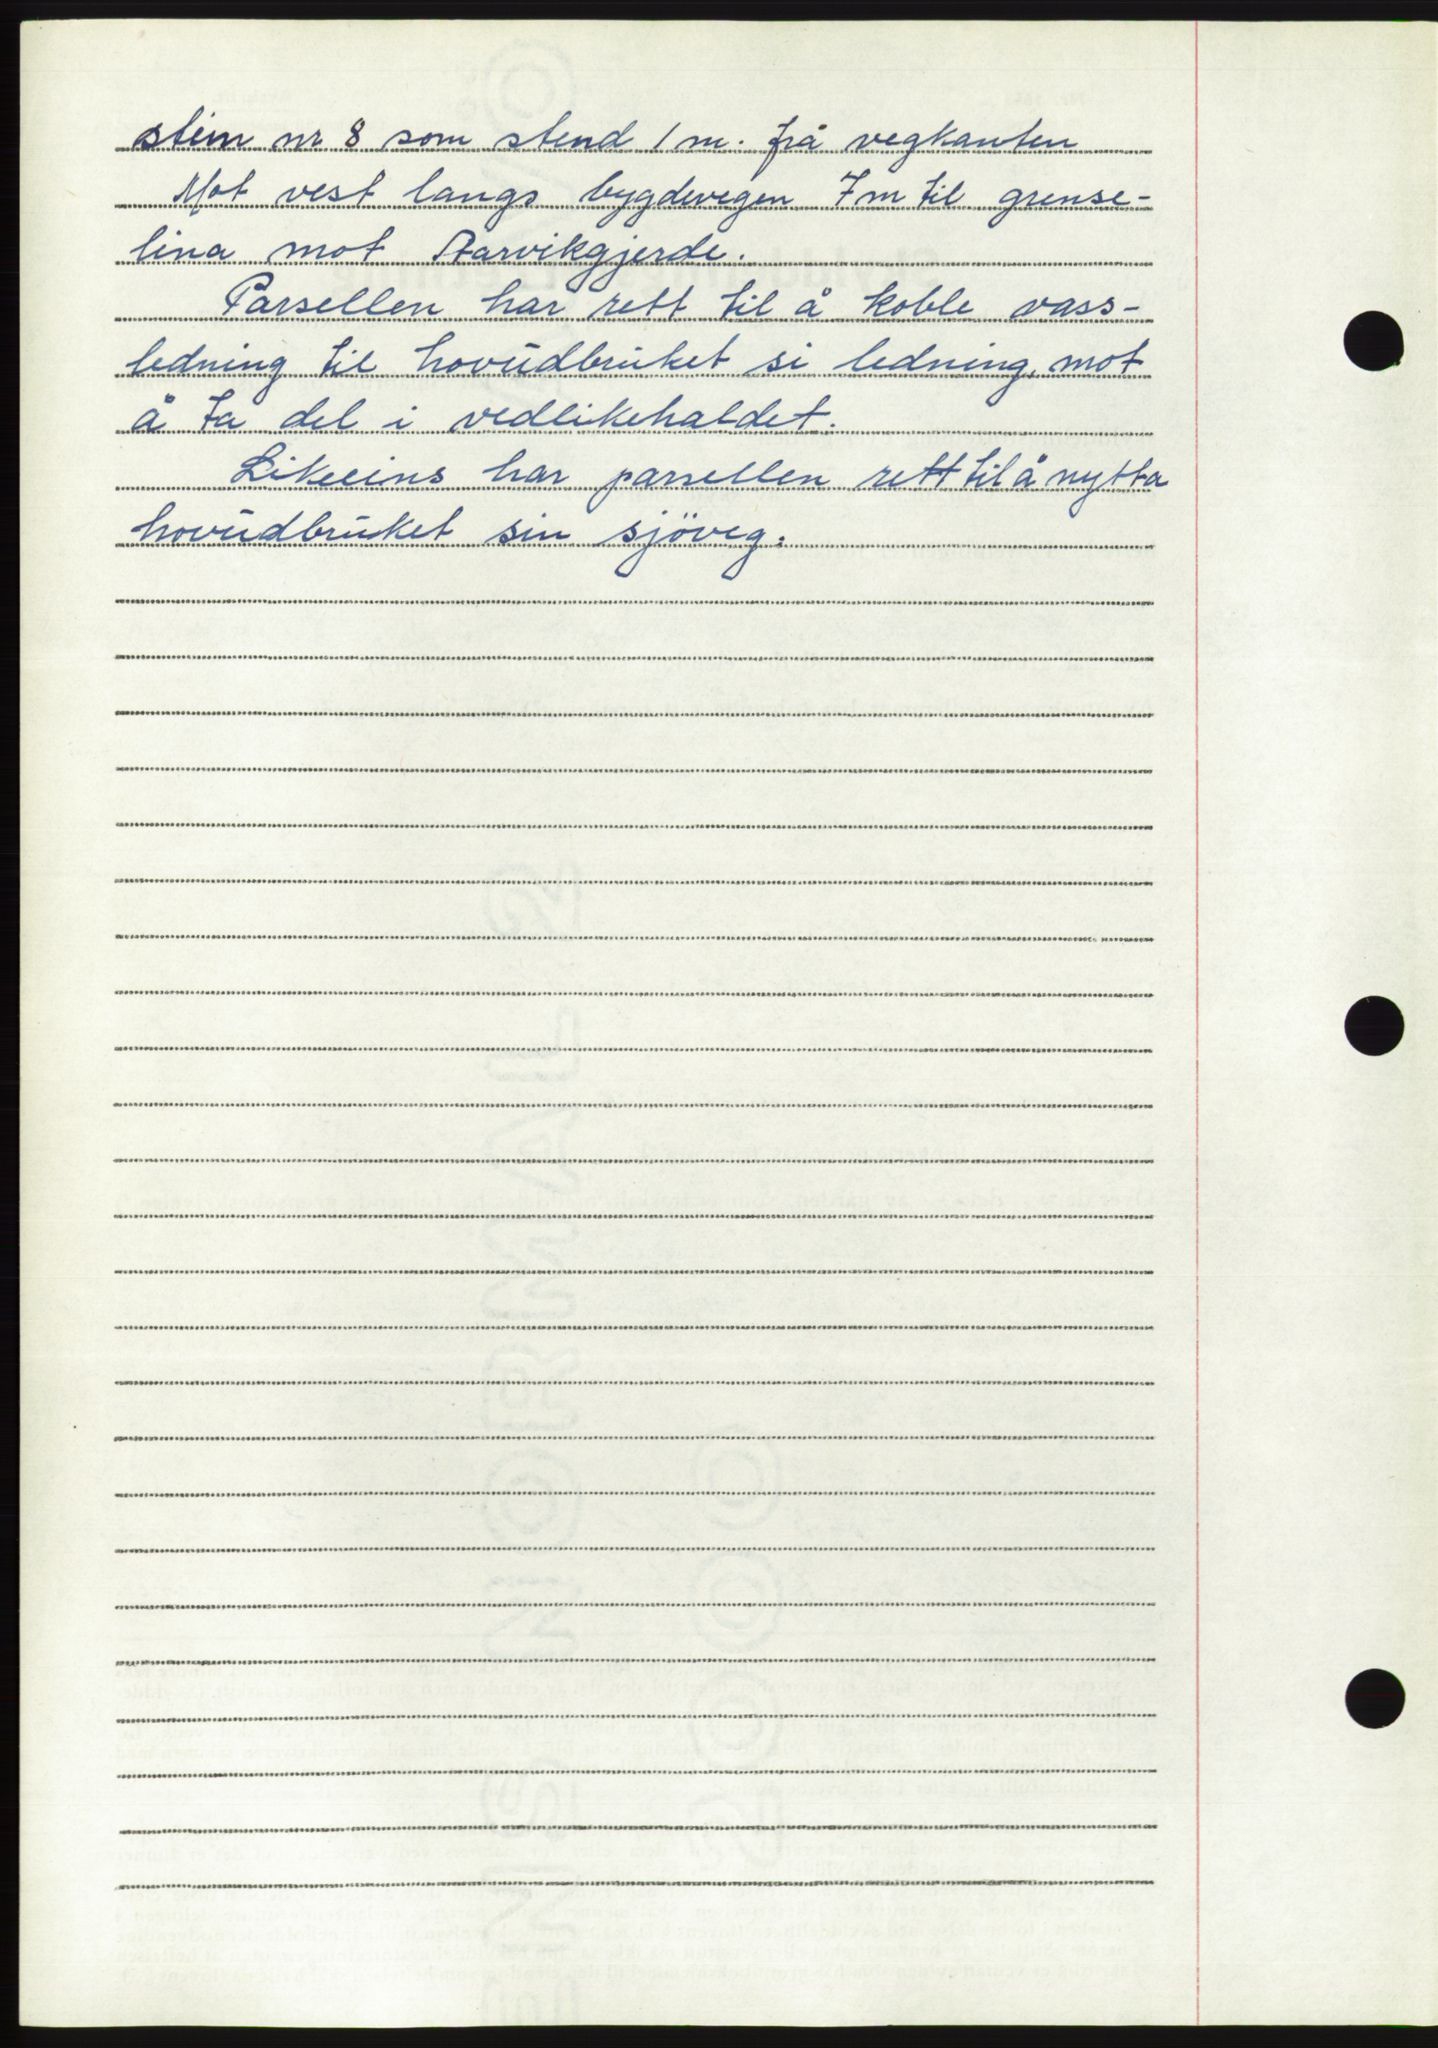 stein nr 8 som stend 1 m. frå vegkanten
Mot vest langs bygdevegen 7 m til grense-
lina mot Aarvikgjerde.
Parsellen har rett til å koble vass-
ledning til hovudbruket si ledning, mot
å ta del i vedlikehaldet.
Likeeins har parsellen rett til å nytta
hovudbruket sin sjöveg.